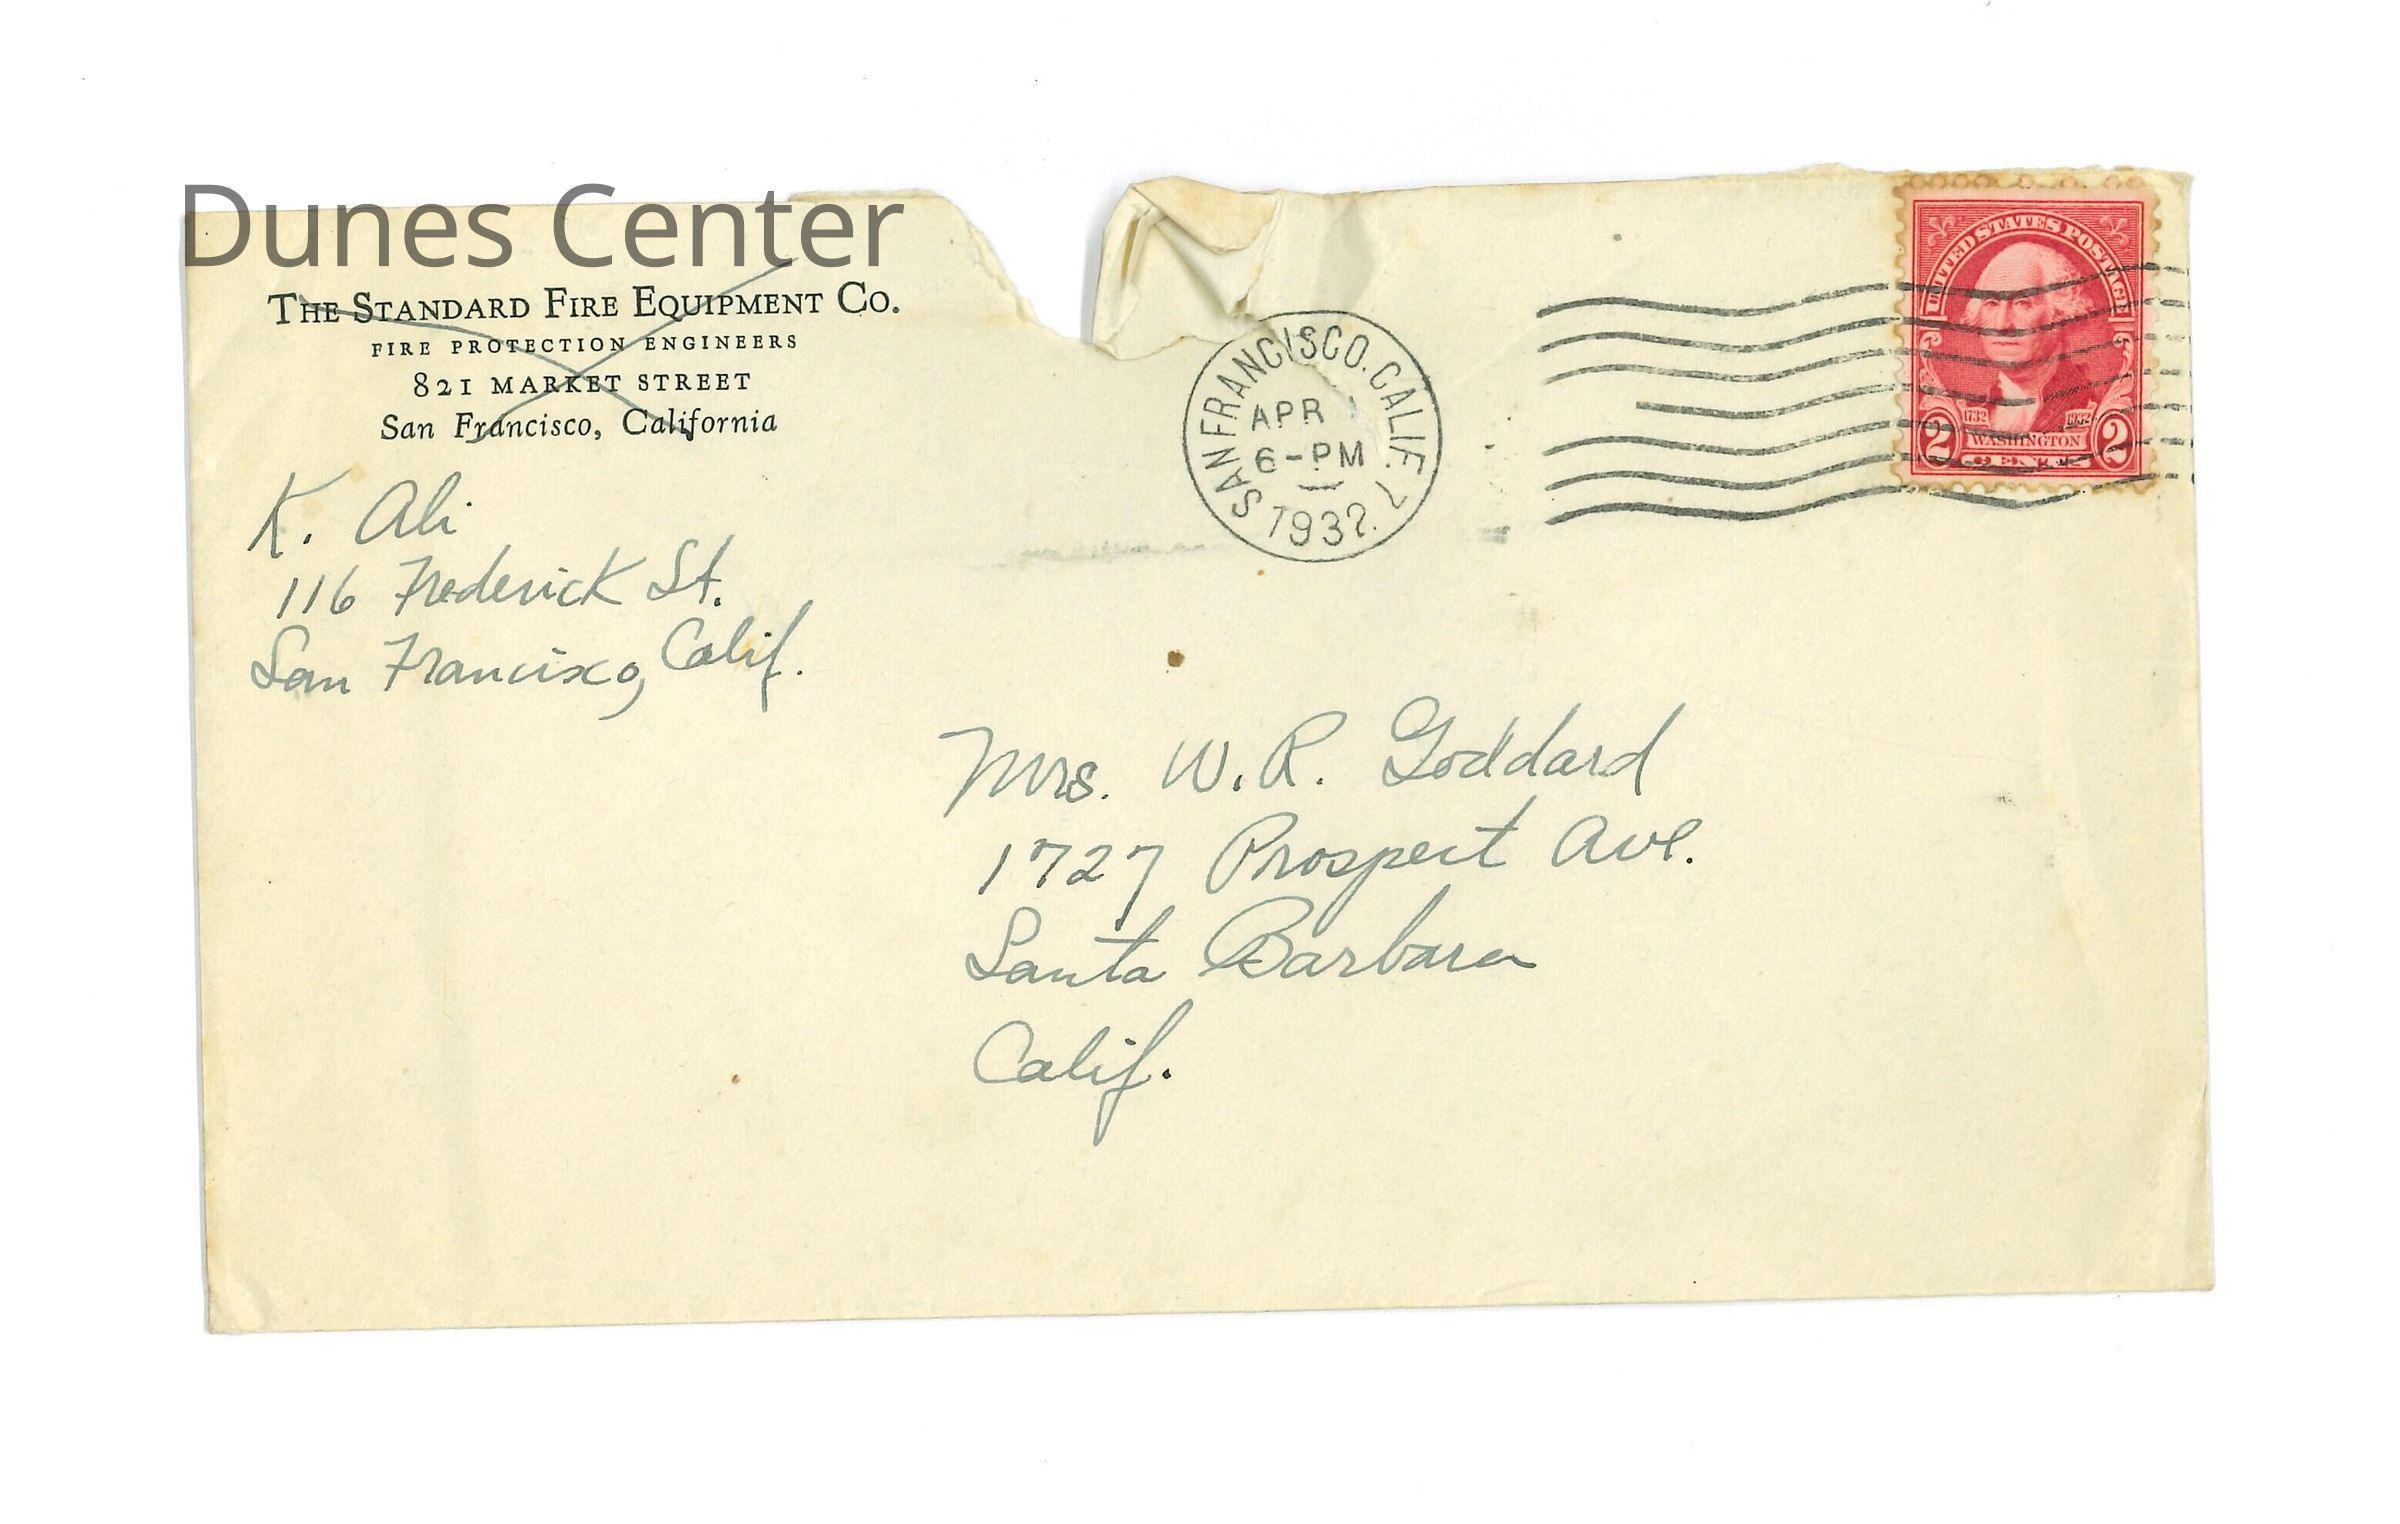 Dunes Center
THE STANDARD FIRE EQUIPMENT CO.
FIRE PROTECTION ENGINEERS
821 MARKET STREET
San Francisco, California
K. Ali
116 Frederick St.
San Francisco, Calif.
SAN FRANCISCO. CALIF.
APR
6-PM
1932.
UNITED STATES POSTAGE
1732 1932
2 WASHINGTON 2
Mrs. W. R. Goddard
1727 Prospect Ave.
Santa Barbara
Calif.